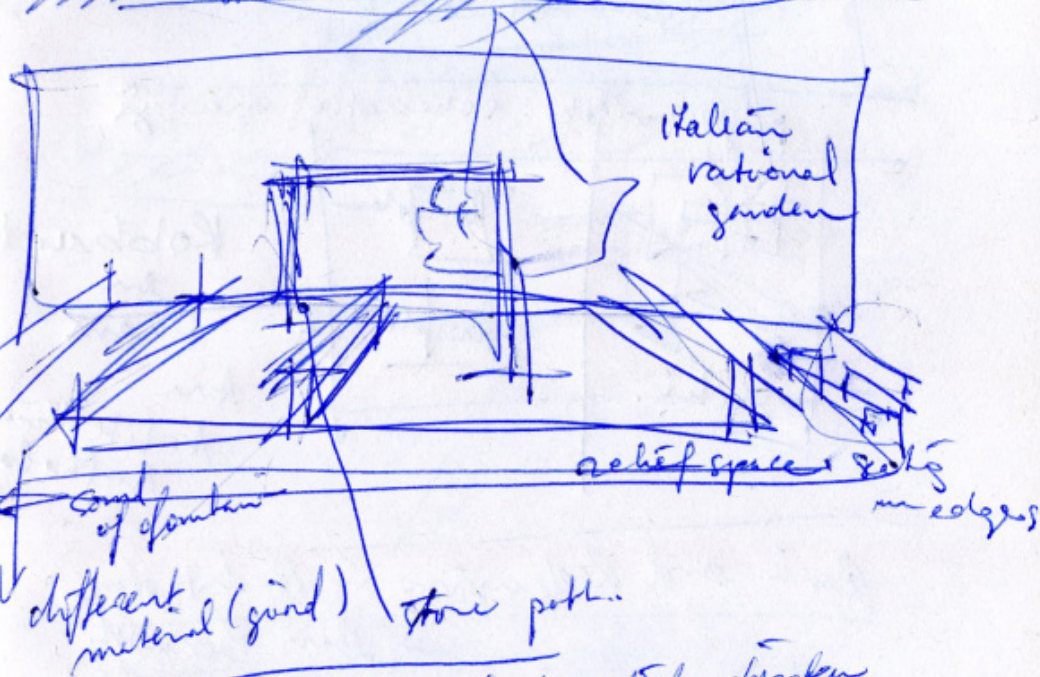 italian
rational
garden
relief space seatig
on edges
sound
of fountain
different
material (grind)
stone path.